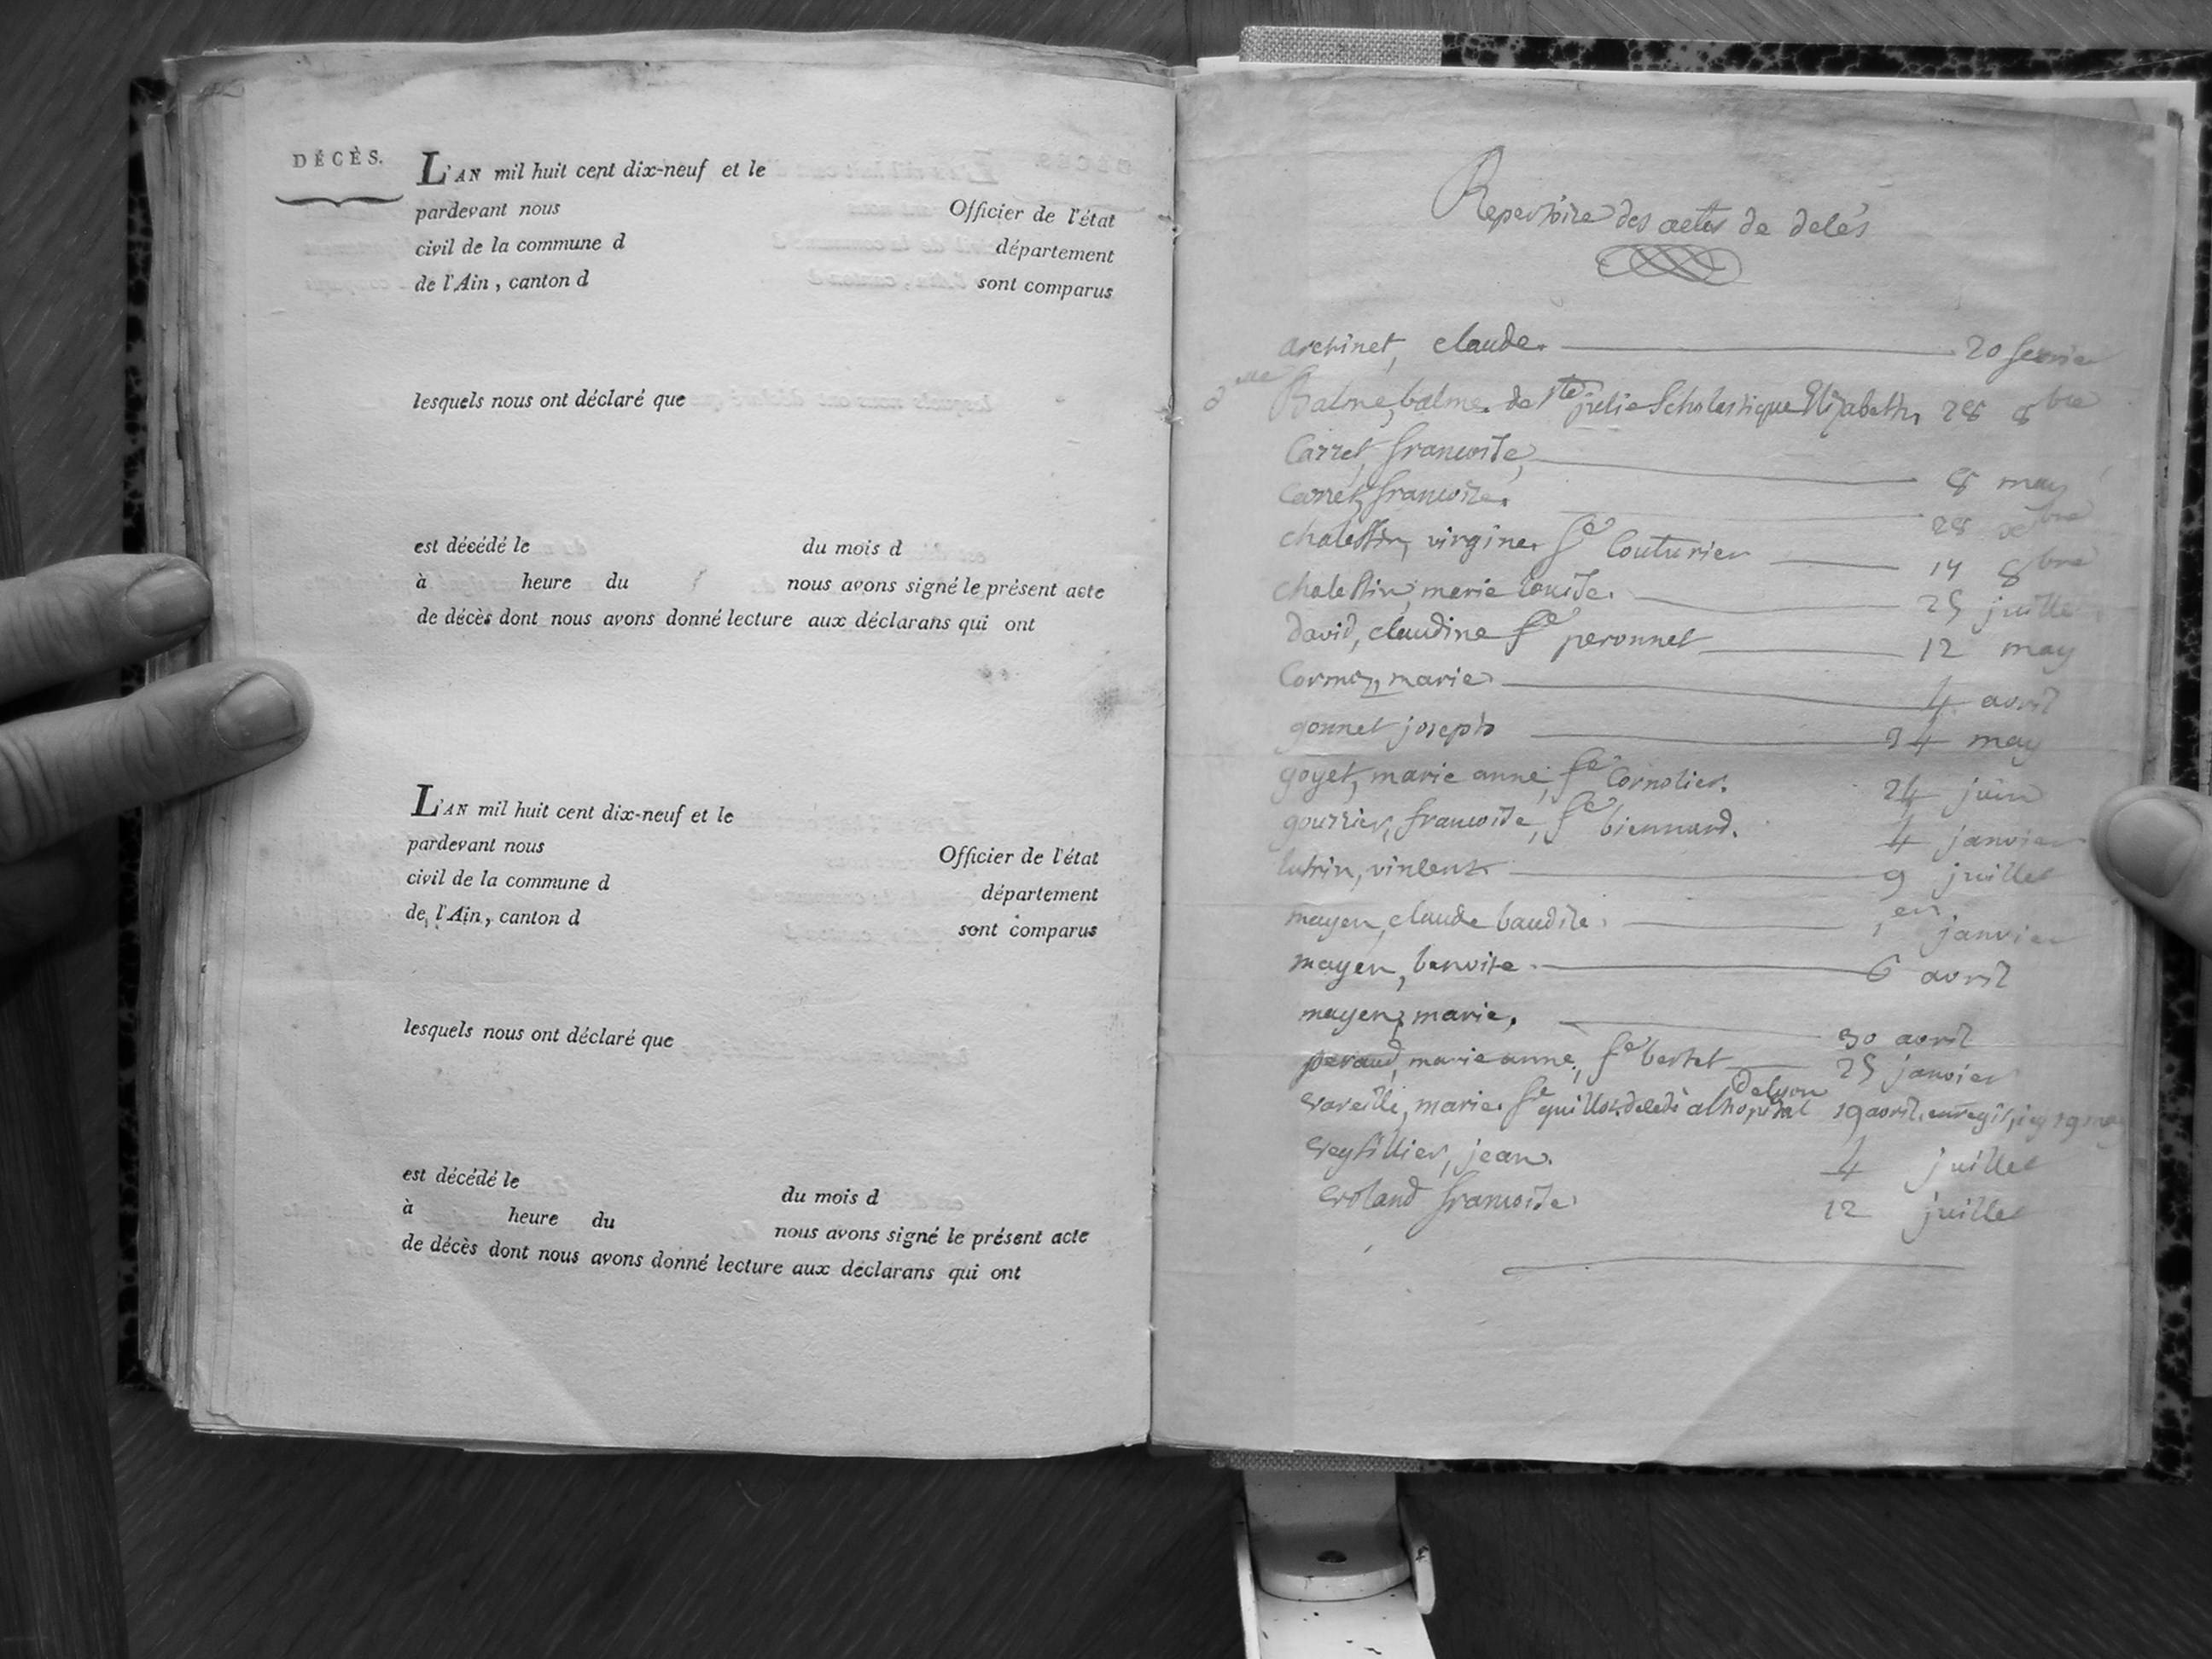 DÉCÈS.
L'AN mil huit cent dix-neuf et le
pardevant nous Officier de l'état
civil de la commune d département
de l'Ain, canton d sont comparus
lesquels nous ont déclaré que
est décédé le du mois d
à heure du nous avons signé le présent acte
de décès dont nous avons donné lecture aux déclarans qui ont
L'AN mil huit cent dix-neuf et le
pardevant nous Officier de l'état
civil de la commune d département
de l'Ain, canton d sont comparus
lesquels nous ont déclaré que
est décédé le du mois d
à heure du nous avons signé le présent acte
de décès dont nous avons donné lecture aux déclarans qui ont
Repertoire des actes de decés
claude. 20
Balme, balme. de Ste julie Scholastique Elizabeth, 28 8bre
Carret, francoise, 8 may
Carret, francoise. 28
virgine. fe Couturier 14 8bre
marie louise. 25 juillet
david, claudine fe peronnet 12 may
marie 4 avril
gonnet joseph 24 may
goyet, marie anne, fe Cornolier. 24 juin
gourrier, francoise, fe biennard. 4 janvier
lutrin, vincent. 9 juillet
mayen, claude baudile. 1er janvier
mayen, benoite. 6 avril
mayen, marie. 30 avril
peraud, marie anne, fe bertet 25 janvier
marie. fe decedé a lhopital de lyon 19 avril.
jean. 4 juillet
roland francoise. 12 juillet